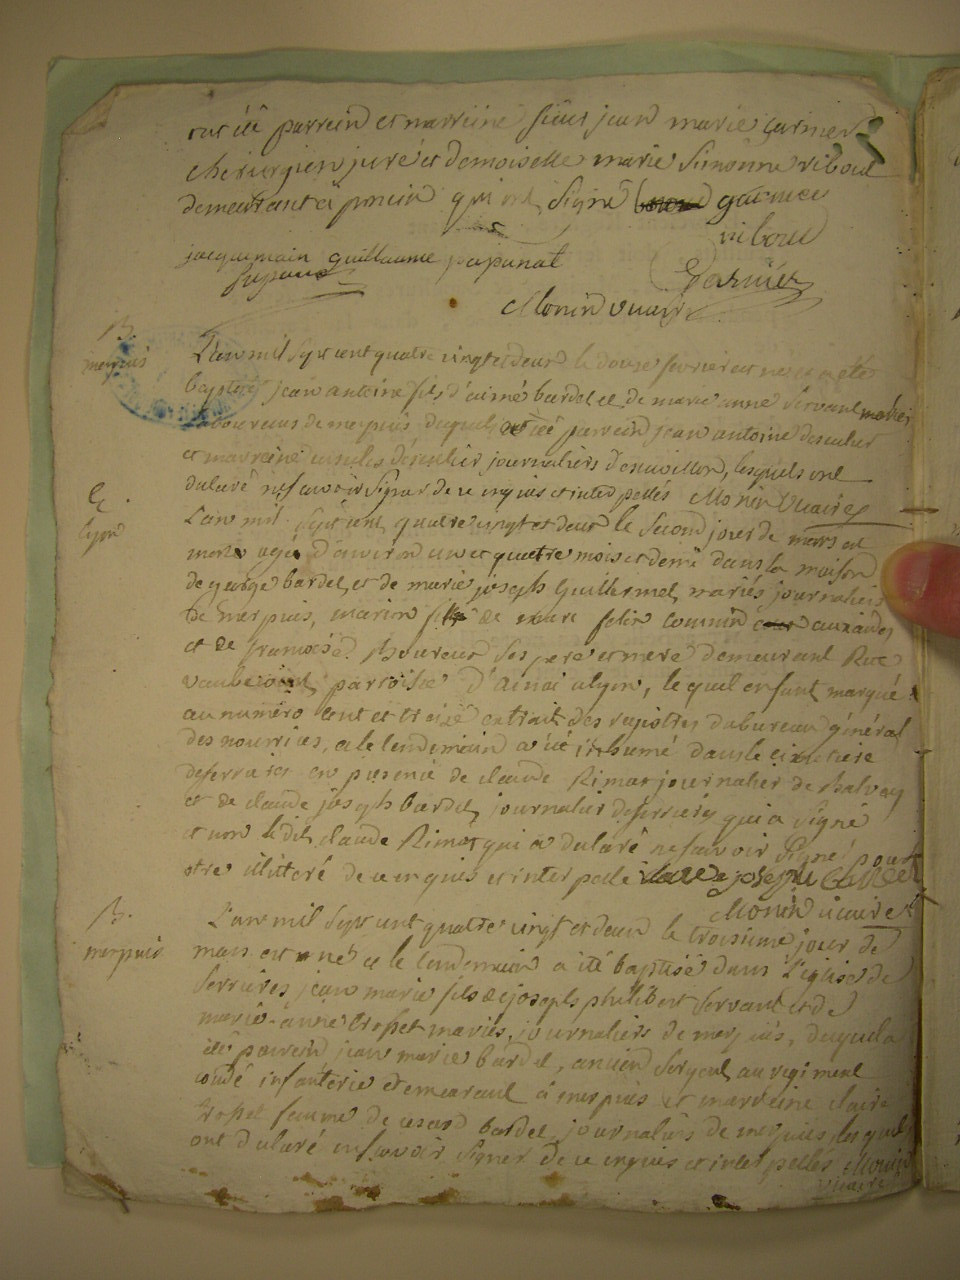 ont été parrein et marreine sieur jean marie garnier
chirurgien juré et demoiselle marie simonne riboud
demeurant à poncin qui ont signé garnier
riboud
jacquemain guillaume papunat
Garnier
Monin vicaire
B.
merpuis
L'an mil sept cent quatre vingt et deux le douze fevrier est né et a été
baptisé jean antoine fils d'aimé bardel et de marie anne servant mariés
laboureurs de merpuis, duquel ont été parrein jean antoine
et marreine journaliers, lesquels ont
declaré ne savoir signer de ce enquis et interpellés Monin Vicaire
E.
Lyon
L'an mil sept cent quatre vingt et deux le second jour de mars est
morte agée d'environ un et quatre mois et demi dans la maison
de george bardel, et de marie joseph Guillermet, mariés journaliers
de merpuis, marion fille de marc felix
et de françoise ses pere et mere demeurant Rue
parroisse d'Ainai a lyon, lequel enfant marqué
au numéro cent et treize extrait des registres du bureau général
des nourrices, et le lendemain a été inhumé dans le cimetiere
de serrieres en presence de claude Rimat journalier de
et de claude joseph bardel, journalier de serrieres qui a signé
et non ledit claude Rimat qui a declaré ne savoir signer pour
etre illitéré de ce enquis et interpellé claude joseph bardel
Monin vicaire
B.
merpuis
L'an mil sept cent quatre vingt et deux le troisieme jour de
mars est né et le lendemain a été baptisé dans l'église de
serrieres, jean marie fils de joseph philibert servant et de
marie-anne trosset mariés, journaliers de merpuis, duquel a
été parrein jean marie bardel, ancien sergent au regiment
condé infanterie demeurant à merpuis et marreine claire
trosset femme de cesard bardel, journaliers de merpuis, lesquels
ont declaré ne savoir signer de ce enquis et interpellés Monin
vicaire